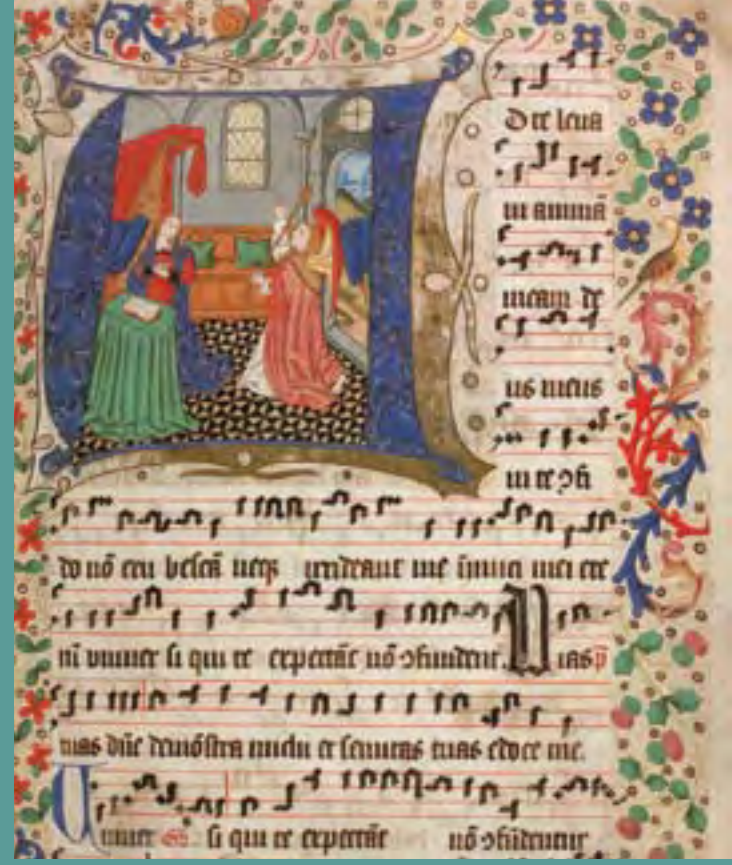 AD te leua
ui animā
meam de
us meus
in te ꝯfi
do nō eru bescā neqꝫ irrideant me īimici mei ete
ni vniuer si qui te expectāt nō ꝯfundentur. Vias
tuas dn̄e demōstra michi et semitas tuas edoce me.
Uniuer si qui te expectāt nō ꝯfūdentur